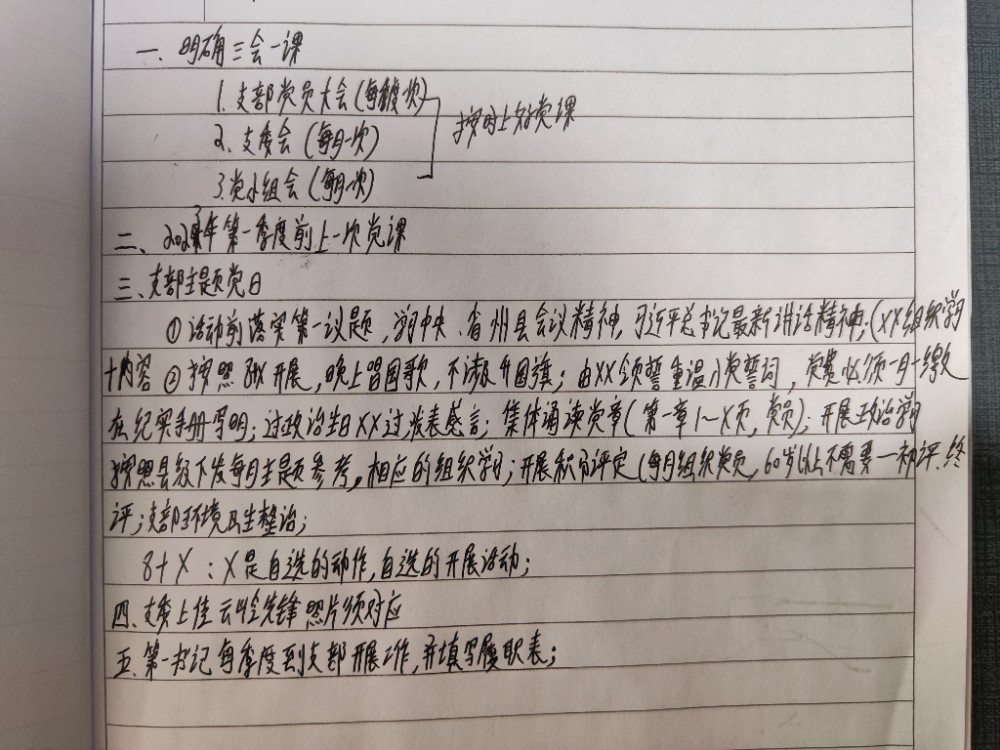 一、明确三会一课
1.支部党员大会(每季度一次)
按时上好党课
2.支委会(每月一次)
3.党小组会(每月一次)
二、年第一季度前上一次党课
三、支部主题党日
①活动前落实第一议题,学习中央、省州县会议精神,习近平总书记最新讲话精神;(XX组织学习
+内容 ②按照8+X开展,晚上唱国歌,不涉及升国旗;由XX领誓重温入党誓词,党费必须一月一缴
在纪实手册写明;过政治生日XX过,发表感言;集体诵读党章(第一章1~X页,党员);开展政治学习
按照县级下发每月主题参考,相应的组织学习;开展积分评定(每月组织党员,60岁以上不需要一初评.终
评;支部环境卫生整治;
8+X:X是自选的动作,自选的开展活动;
四.支委上传云岭先锋照片须对应
五.第一书记每季度到支部开展工作,并填写履职表;